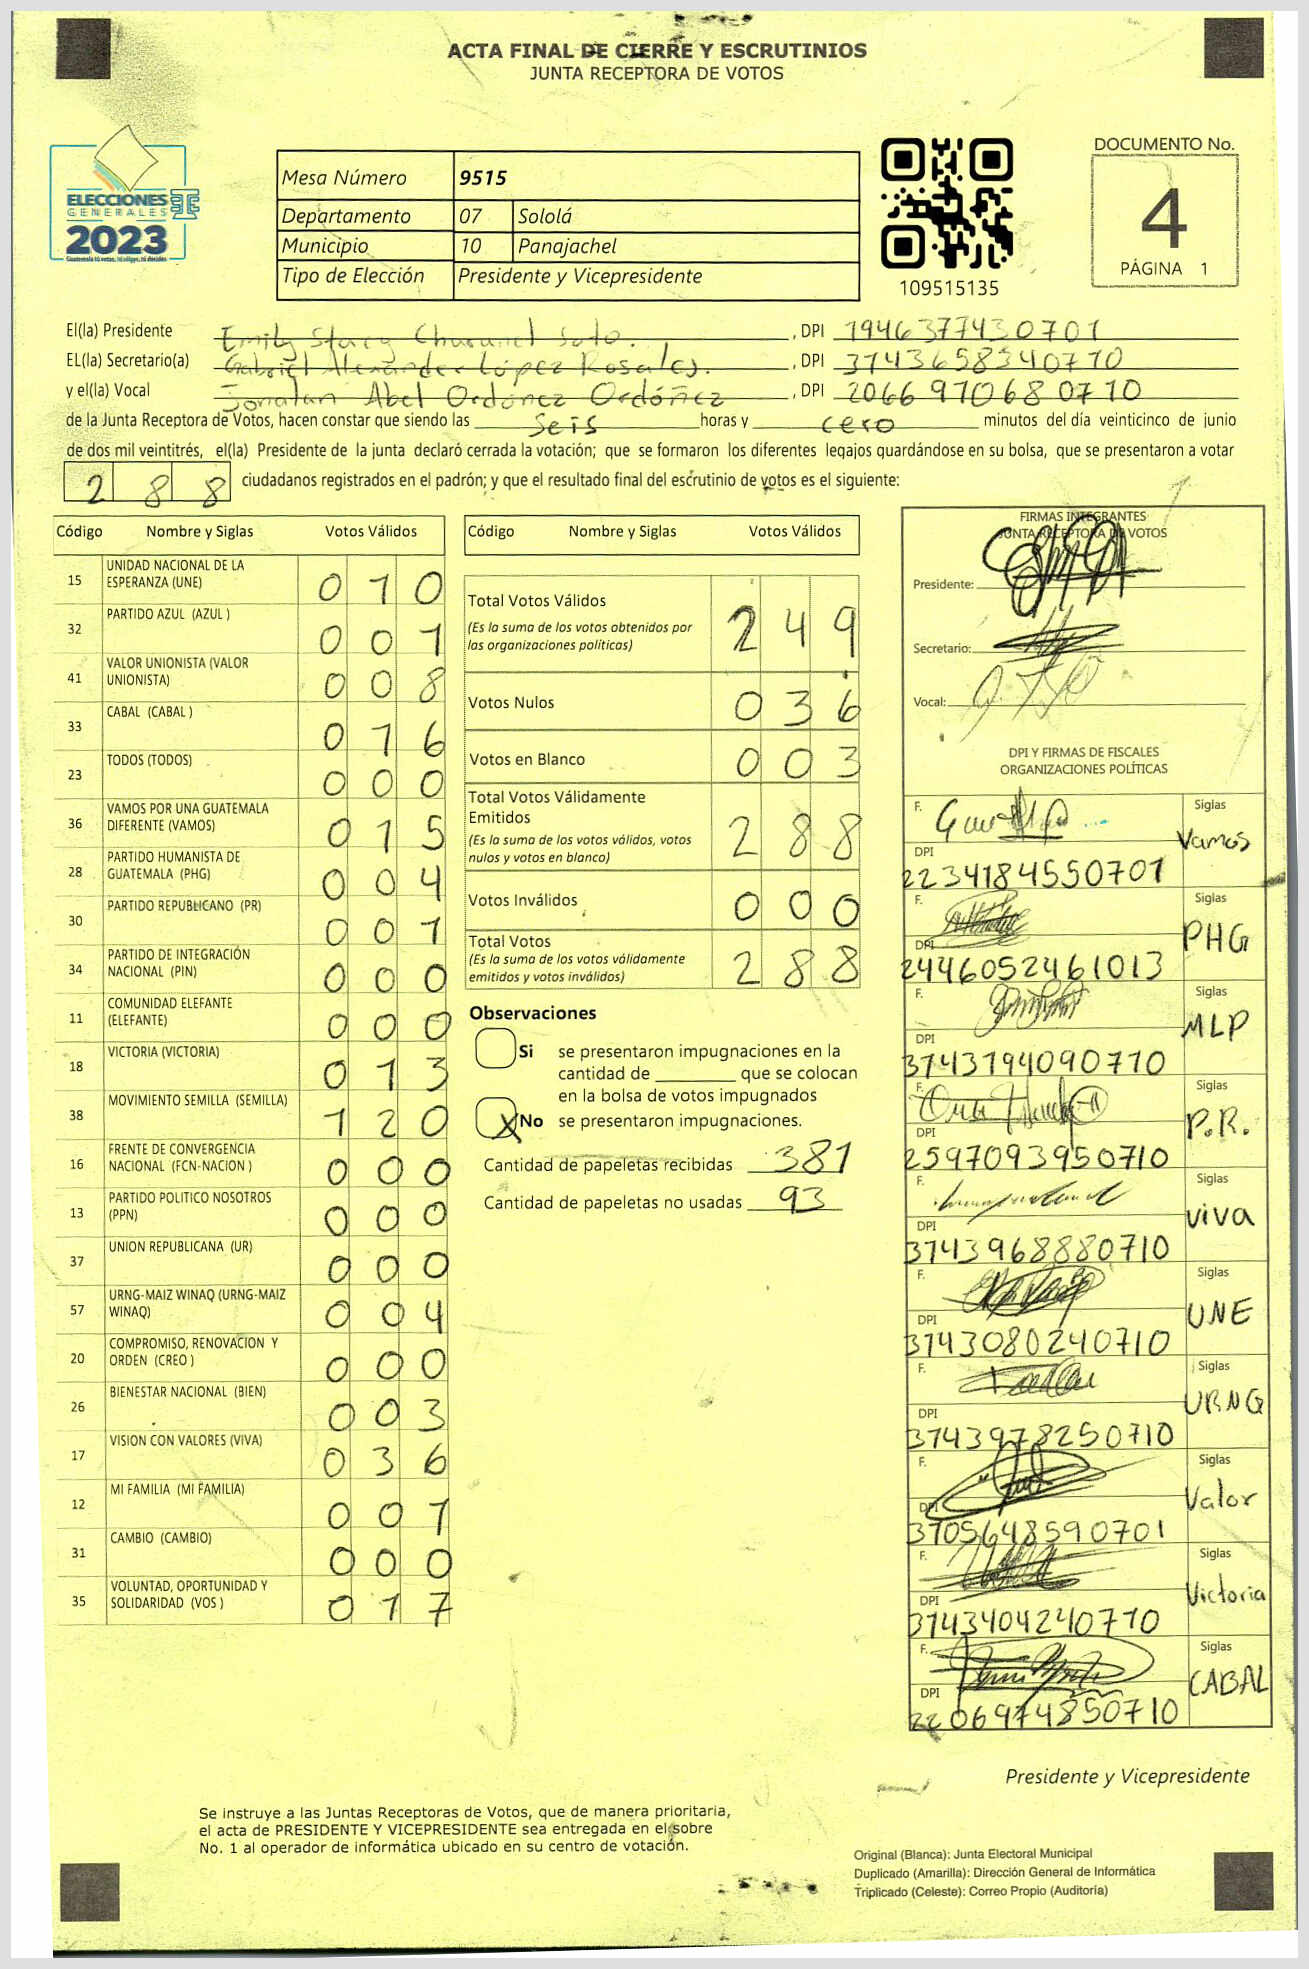 ACTA FINAL DE CIERRE Y ESCRUTINIOS
JUNTA RECEPTORA DE VOTOS
ELECCIONES
GENERALES
2023
Guatemala tú votas, tú eliges, tú decides
Mesa Número 9515
Departamento 07 Sololá
Municipio 10 Panajachel
Tipo de Elección Presidente y Vicepresidente
109515135
DOCUMENTO No.
4
PÁGINA 1
El(la) Presidente Emily Stacy Soto. , DPI 1946377430701
EL(la) Secretario(a) Gabriel Alexander López Rosales. , DPI 3743658340710
y el(la) Vocal Jonatan Abel Ordóñez Ordóñez , DPI 2066970680710
de la Junta Receptora de Votos, hacen constar que siendo las seis horas y cero minutos del día veinticinco de junio
de dos mil veintitrés, el(la) Presidente de la junta declaró cerrada la votación; que se formaron los diferentes legajos guardándose en su bolsa, que se presentaron a votar
288 ciudadanos registrados en el padrón; y que el resultado final del escrutinio de votos es el siguiente:
Código Nombre y Siglas Votos Válidos
15 UNIDAD NACIONAL DE LA ESPERANZA (UNE) 010
32 PARTIDO AZUL (AZUL ) 001
41 VALOR UNIONISTA (VALOR UNIONISTA) 008
33 CABAL (CABAL ) 016
23 TODOS (TODOS) 000
36 VAMOS POR UNA GUATEMALA DIFERENTE (VAMOS) 015
28 PARTIDO HUMANISTA DE GUATEMALA (PHG) 004
30 PARTIDO REPUBLICANO (PR) 001
34 PARTIDO DE INTEGRACIÓN NACIONAL (PIN) 000
11 COMUNIDAD ELEFANTE (ELEFANTE) 000
18 VICTORIA (VICTORIA) 013
38 MOVIMIENTO SEMILLA (SEMILLA) 120
16 FRENTE DE CONVERGENCIA NACIONAL (FCN-NACION ) 000
13 PARTIDO POLITICO NOSOTROS (PPN) 000
37 UNION REPUBLICANA (UR) 000
57 URNG-MAIZ WINAQ (URNG-MAIZ WINAQ) 004
20 COMPROMISO, RENOVACION Y ORDEN (CREO ) 000
26 BIENESTAR NACIONAL (BIEN) 003
17 VISION CON VALORES (VIVA) 036
12 MI FAMILIA (MI FAMILIA) 001
31 CAMBIO (CAMBIO) 000
35 VOLUNTAD, OPORTUNIDAD Y SOLIDARIDAD (VOS ) 017
Código Nombre y Siglas Votos Válidos
Total Votos Válidos 249
(Es la suma de los votos obtenidos por
las organizaciones políticas)
Votos Nulos 036
Votos en Blanco 003
Total Votos Válidamente
Emitidos 288
(Es la suma de los votos válidos, votos
nulos y votos en blanco)
Votos Inválidos 000
Total Votos 288
(Es la suma de los votos válidamente
emitidos y votos inválidos)
Observaciones
Si se presentaron impugnaciones en la
cantidad de ________ que se colocan
en la bolsa de votos impugnados
X No se presentaron impugnaciones.
Cantidad de papeletas recibidas 381
Cantidad de papeletas no usadas 93
FIRMAS INTEGRANTES
JUNTA RECEPTORA DE VOTOS
Presidente:
Secretario:
Vocal:
DPI Y FIRMAS DE FISCALES
ORGANIZACIONES POLÍTICAS
F. Siglas
Vamos
DPI
2234184550701
F. Siglas
PHG
DPI
2446052461013
F. Siglas
MLP
DPI
3743794090710
F. Siglas
P.R.
DPI
2597093950710
F. Siglas
viva
DPI
3743968880710
F. Siglas
UNE
DPI
3743080240710
F. Siglas
URNG
DPI
3743978250710
F. Siglas
Valor
DPI
3705648590701
F. Siglas
Victoria
DPI
3743404240710
F. Siglas
CABAL
DPI
2206974850710
Presidente y Vicepresidente
Se instruye a las Juntas Receptoras de Votos, que de manera prioritaria,
el acta de PRESIDENTE Y VICEPRESIDENTE sea entregada en el sobre
No. 1 al operador de informática ubicado en su centro de votación.
Original (Blanca): Junta Electoral Municipal
Duplicado (Amarilla): Dirección General de Informática
Triplicado (Celeste): Correo Propio (Auditoría)